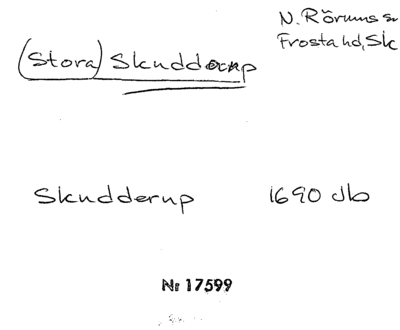 N. Rörums sn
Frosta hd, Sk
(Stora) Skudderup
Skudderup 1690 Jb
Nr 17599